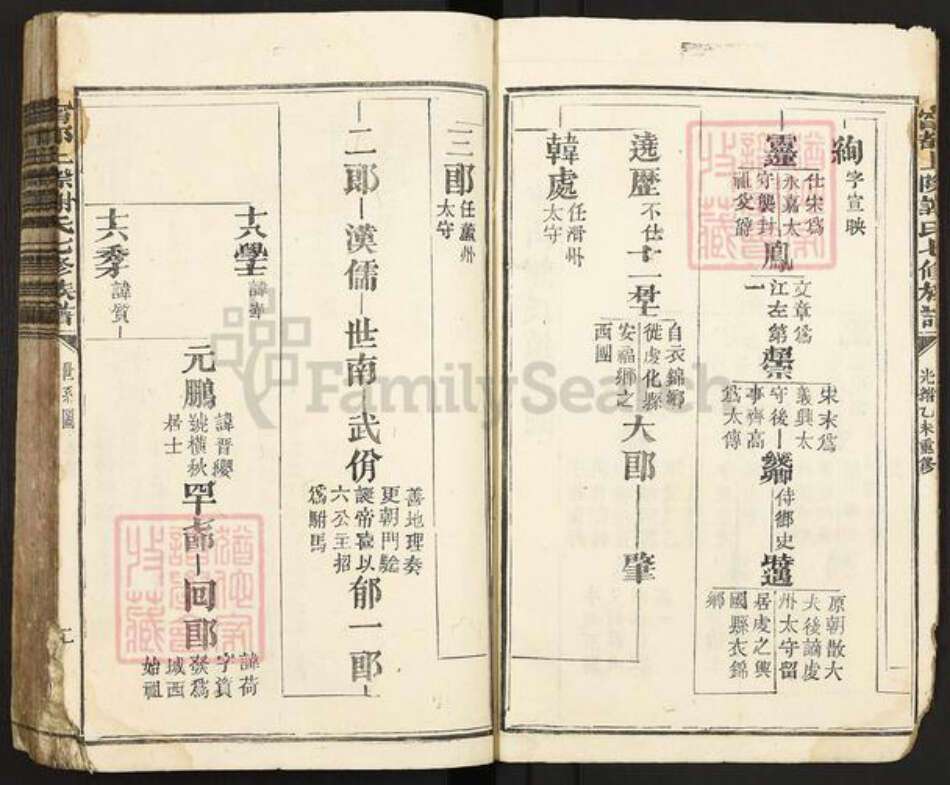 絢
字宣映
靈
仕宋爲
永嘉太
守襲封
祖文爵
鳳
文章爲
江左第
一
宋末爲
義興太
守後
事齊高
爲太傅
侍鄉史
原朝散大
夫後謫虔
州太守留
居虔之興
國縣衣錦
鄉
遶歷
不仕
自衣錦鄉
徙虔化縣
安福鄉之
西團
大郎
肇
韓處
任滑州
太守
三郎
任薫州
太守
二郎
漢儒
世南
武俏
善地理奏
更朝門驗
誕帝喜以
六公主招
爲駙馬
郁一郎
十八學士
諱寄
十六秀才
諱質
元鵬
諱晋纓
號橫秋
居士
回郎
諱荷
字賁
發爲
城西
始祖
光緒乙未重修
謝氏七修族譜
世系圖
FamilySearch